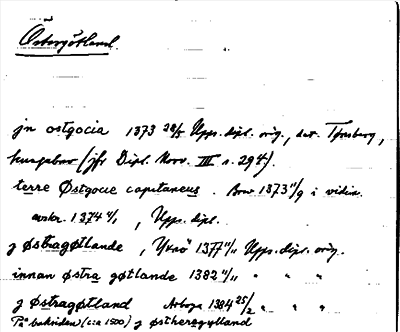 Östergötland.
jn ostgocia 1373 28/5 Upps. dipl. orig., dat. Tønsberg,
kungabrev (jfr Dipl. Norv. III s. 294).
terre Østgocie capitaneus. Brev 1373 11/9 i vidim.
avskr. 1374 4/1, Upps. dipl.
j Østragøtlande, 1377 11/11 Upps. dipl. orig.
innan østra gøtlande 1382 11/11 " " "
j Østragøtland Arboga 1384 25/2 " " "
På baksidan (c:a 1500) j østheragylland